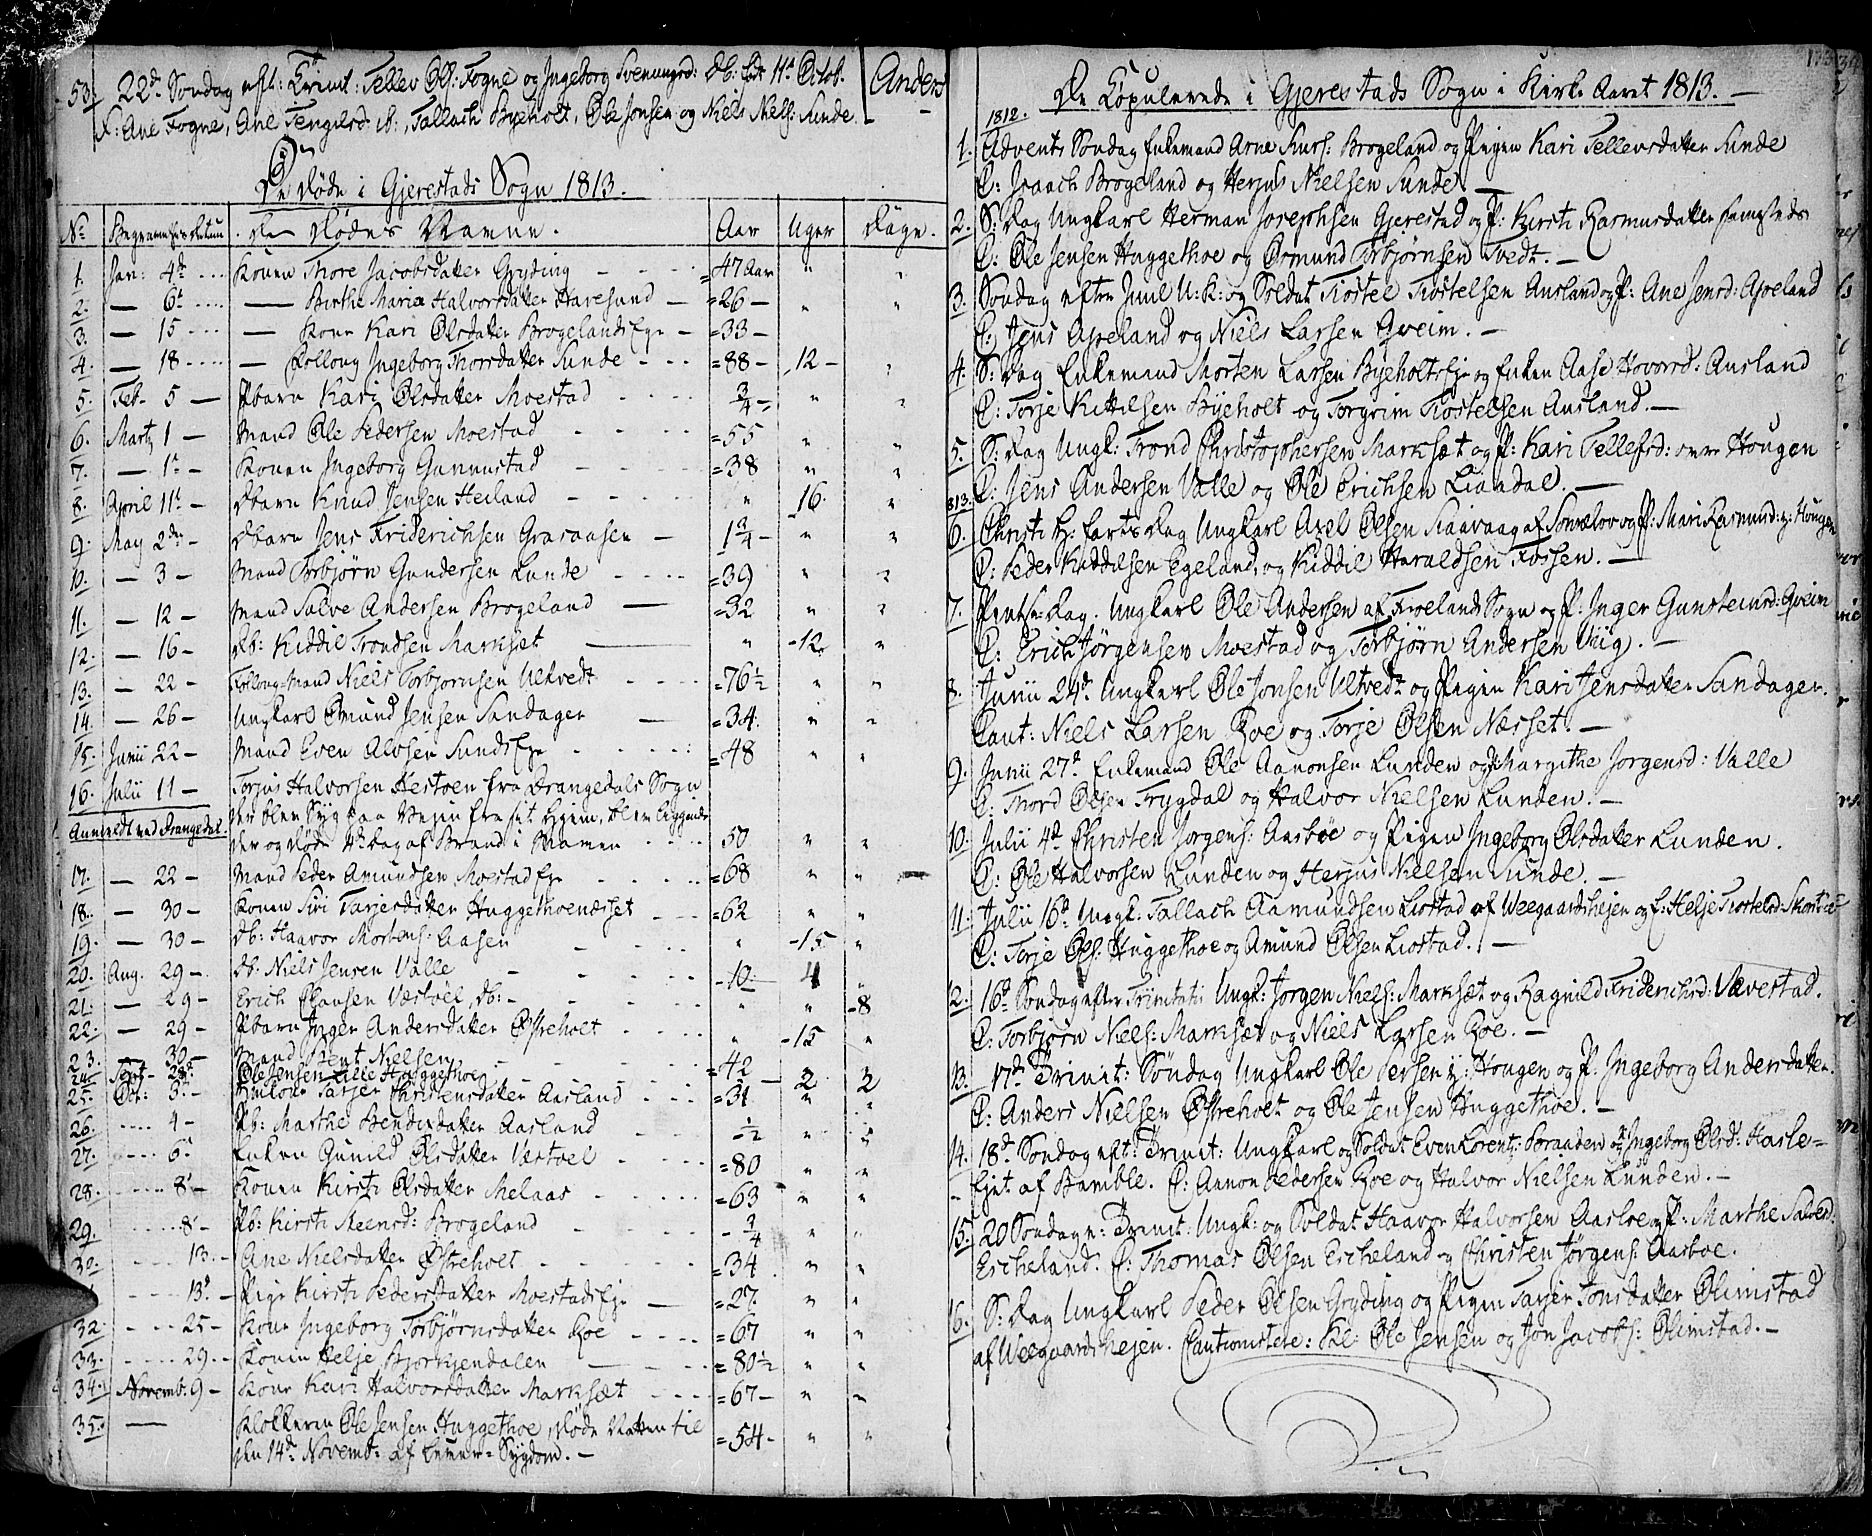 53. 22d Søndag eft: Trinit: Tellev Ols: Fogne og Ingeborg Svenungsd: Db: født 11t Octob. Anders
F: Ane Fogne, Ane Tengelsd: ib., Tallach Byeholt, Ole Jonsen og Niels Niels: Sunde.
De Døde i Gjerestads Sogn 1813.
No Begravelses Datum. den Dødes Navne. Aar Uger Dage.
1. Jan: 4de Konen Thore Jacobsdatter Gryding = 47 Aar " "
2. — 6t — Birthe Maria Halvorsdatter Haresund = 26 — " "
3. — 15 — Kone Kari Olsdatter Brogelands Eje = 33 —
4. — 18 — Follong Ingeborg Thorsdatter Sunde = 88 — 12 — "
5. Feb. 5 — Pbarn Kari Olsdatter Moestad 3/4 — " "
6. Martz 1 — Mand Ole Pedersen Moestad = 55 " "
7. — 1t — Konen Ingeborg Gunnestad = 38 " "
8. April 11t Dbarn Knud Jensen Heiland " 16. "
9. May 2den Dbarn Jens Friderichsen Graraasen — 1 3/4 — " "
10. — 3 — Mand Torbjørn Gundersen Lunde = 39 " "
11. — 12 — Mand Salve Andersen Brogeland = 32 " "
12. — 16 — Db: Kiddil Trondsen Marksæt " -12. "
13. — 22 — Follong-Mand Niels Torbjørnsen Ueltvedt = 76 1/2 " "
14. — 26 — Ungkarl Omund Jensen Sandager = 34. " "
15. Junii 22 — Mand Even Alvsen Sunds Eje = 48 " "
16. Julii 11 — Torjus Halvorsen Hestøen fra Drangedals Sogn
Anmeldt ved Drangedal. der blev Syg paa Vejen fra sit Hjem, blev liggende
der og døde 4de Dag af Brand i Maven 50 " "
17. — 22 — Mand Peder Amundsen Moestad Eje = 68 " "
18. — 30 — Konen Siri Tarjesdatter Huggethoenæsset = 62 " "
19. — 30 — Db: Haavor Mortens: Aasen " -15 "
20. Aug. 29 — Db. Niels Jensen Valle -10 4 "
21. — 29 — Erich Clausen Vestøel Db: " " -8
22. — 29 — Pbarn Inger Andersdatter Østreholt " -15 "
23. — 30 — Mand Bent Nielsen = 42
24. Sept- 28t Ole Jensen Lille Huggethoe — 2 2
25. Oct: 3. — Tarjer Christensdatter Aasland = 31 " "
26. 4 — Pb: Marthe Bendixdatter Aasland - 1/2 " "
27. 6t Enken Gunild Olsdatter Vestøel = 80 " "
28. 8 — Konen Kirsti Olsdatter Melaas = 63 " "
29. 8 — Pb: Kirsti Steensd: Brogeland - 3/4 " "
30. 13. — Ane Nielsdatter Østreholt = 34 " "
13d — Pige Kirsti Pedersdatter Moestads Eje = 27. " "
32. 25 — Kone Ingeborg Torbjørnsdatter Roe = 67 " "
33. 29. — Konen Helje Bjorkjendalen = 80 1/2 " "
34. Novemb: 9 — Kone Kari Halvorsdatter Marksæt = 67 — " "
35. — Klokkeren Ole Jensen Huggethoe, døde Natten til
den 14d Novemb: af Sygdom. — = 54 - " "
De Copulerede i Gjerestads Sogn i Kirke Aaret 1813. —
1812.
1. Advents Søndag Enkemand Arne Knuds: Brogeland og Pigen Kari Tellevsdatter Sunde
C: Isaach Brogeland og Herjus Nielsen Sunde. —
2. S: Dag Ungkarl Herman Josephsen Gjerestad og P: Kirsti Rasmusdatter sammesteds
C: Ole Jensen Huggethoe og Osmund Torbjørnsen Tvedt. —
3. Søndag efter Juul U:K: og Soldat Trostel Trostelsen Ausland og P: Ane Jensd: Apeland
C: Jens Apeland og Niels Larsen Qveim. —
4. S: Dag Enkemand Morten Larsen Byeholts Eje og Enken Aase Hovorsd: Ausland
C: Torje Kittilsen Byeholt og Torgrim Trostelsen Ausland. —
5. S: Dag Ungk: Trond Christophersen Marksæt og P: Kari Tellefsd: øvre Hougen
C: Jens Andersen Valle og Ole Erichsen Liandal. —
813.
6. Christi H: farts Dag Ungkarl Axel Olsen Staavaag af Sønneløv og P: Mari Rasmusd: y: Hougen
C: Peder Kiddilsen Egeland, og Kiddil Haraldsen Fossen. —
7. Pintse Dag. Ungkarl Ole Andersen af Froelands Sogn og P: Inger Gunsteinsd: Qveim
C: Erich Jørgensen Moestad og Torbjørn Andersen Viig. —
8. Junii 24d. Ungkarl Ole Jonsen Ultvedt og Pigen Kari Jensdatter Sandager.
Caut: Niels Larsen Roe og Torje Olsen Næsset. —
9. Junii 27d Enkemand Ole Aanonsen Lunden og P: Margithe Jorgensd: Valle
C: Thord Olsen Trygdal og Halvor Nielsen Lunden. —
10. Julii 4d Christen Jorgens: Aasbøe og Pigen Ingeborg Olsdatter Lunden.
C: Ole Halvorsen Lunden og Herjus Nielsen Sunde. —
11. Julii 16d Ungk: Tallach Aamundsen Liostad af Weegaardshejen og P: Helje Trostelsd:
C: Torje Ols: Huggethoe og Amund Olsen Liostad. —
12. 16d Søndag efter Trinitatis Ungk: Jorgen Niels: Marksæt og Ragnild Friderichsd: Vævestad.
C: Torbjørn Niels: Marksæt og Niels Larsen Roe. —
13. 17d Trinit: Søndag Ungkarl Ole Persen y: Hougen og P: Ingeborg Andersdatter.
C: Anders Nielsen Østreholt og Ole Jensen Huggethoe. —
14. 18d Søndag eft: Trinit: Ungkarl og Soldat Even Lorentz: og P: Ingeborg Olsd: Hasle=
Ejet af Bamble. C: Aanon Pedersen Roe og Halvor Nielsen Lunden. —
15. 20 Søndag e: Trinit. Ungk: og Soldat Haavor Halvorsen Aasbøe og P: Marthe Salvesd:
Escheland. C: Thomas Olsen Escheland og Christen Jørgens: Aasboe.
16. S: Dag Ungkarl Peder Olsen Gryding og Pigen Tarjer Jonsdatter Olimstad
af Weegaardshejen. Cautionistere: Kl: Ole Jensen og Jon Jacobs: Olimstad. —